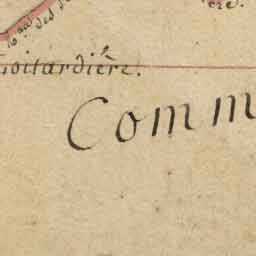 des
oitardière.
Comm